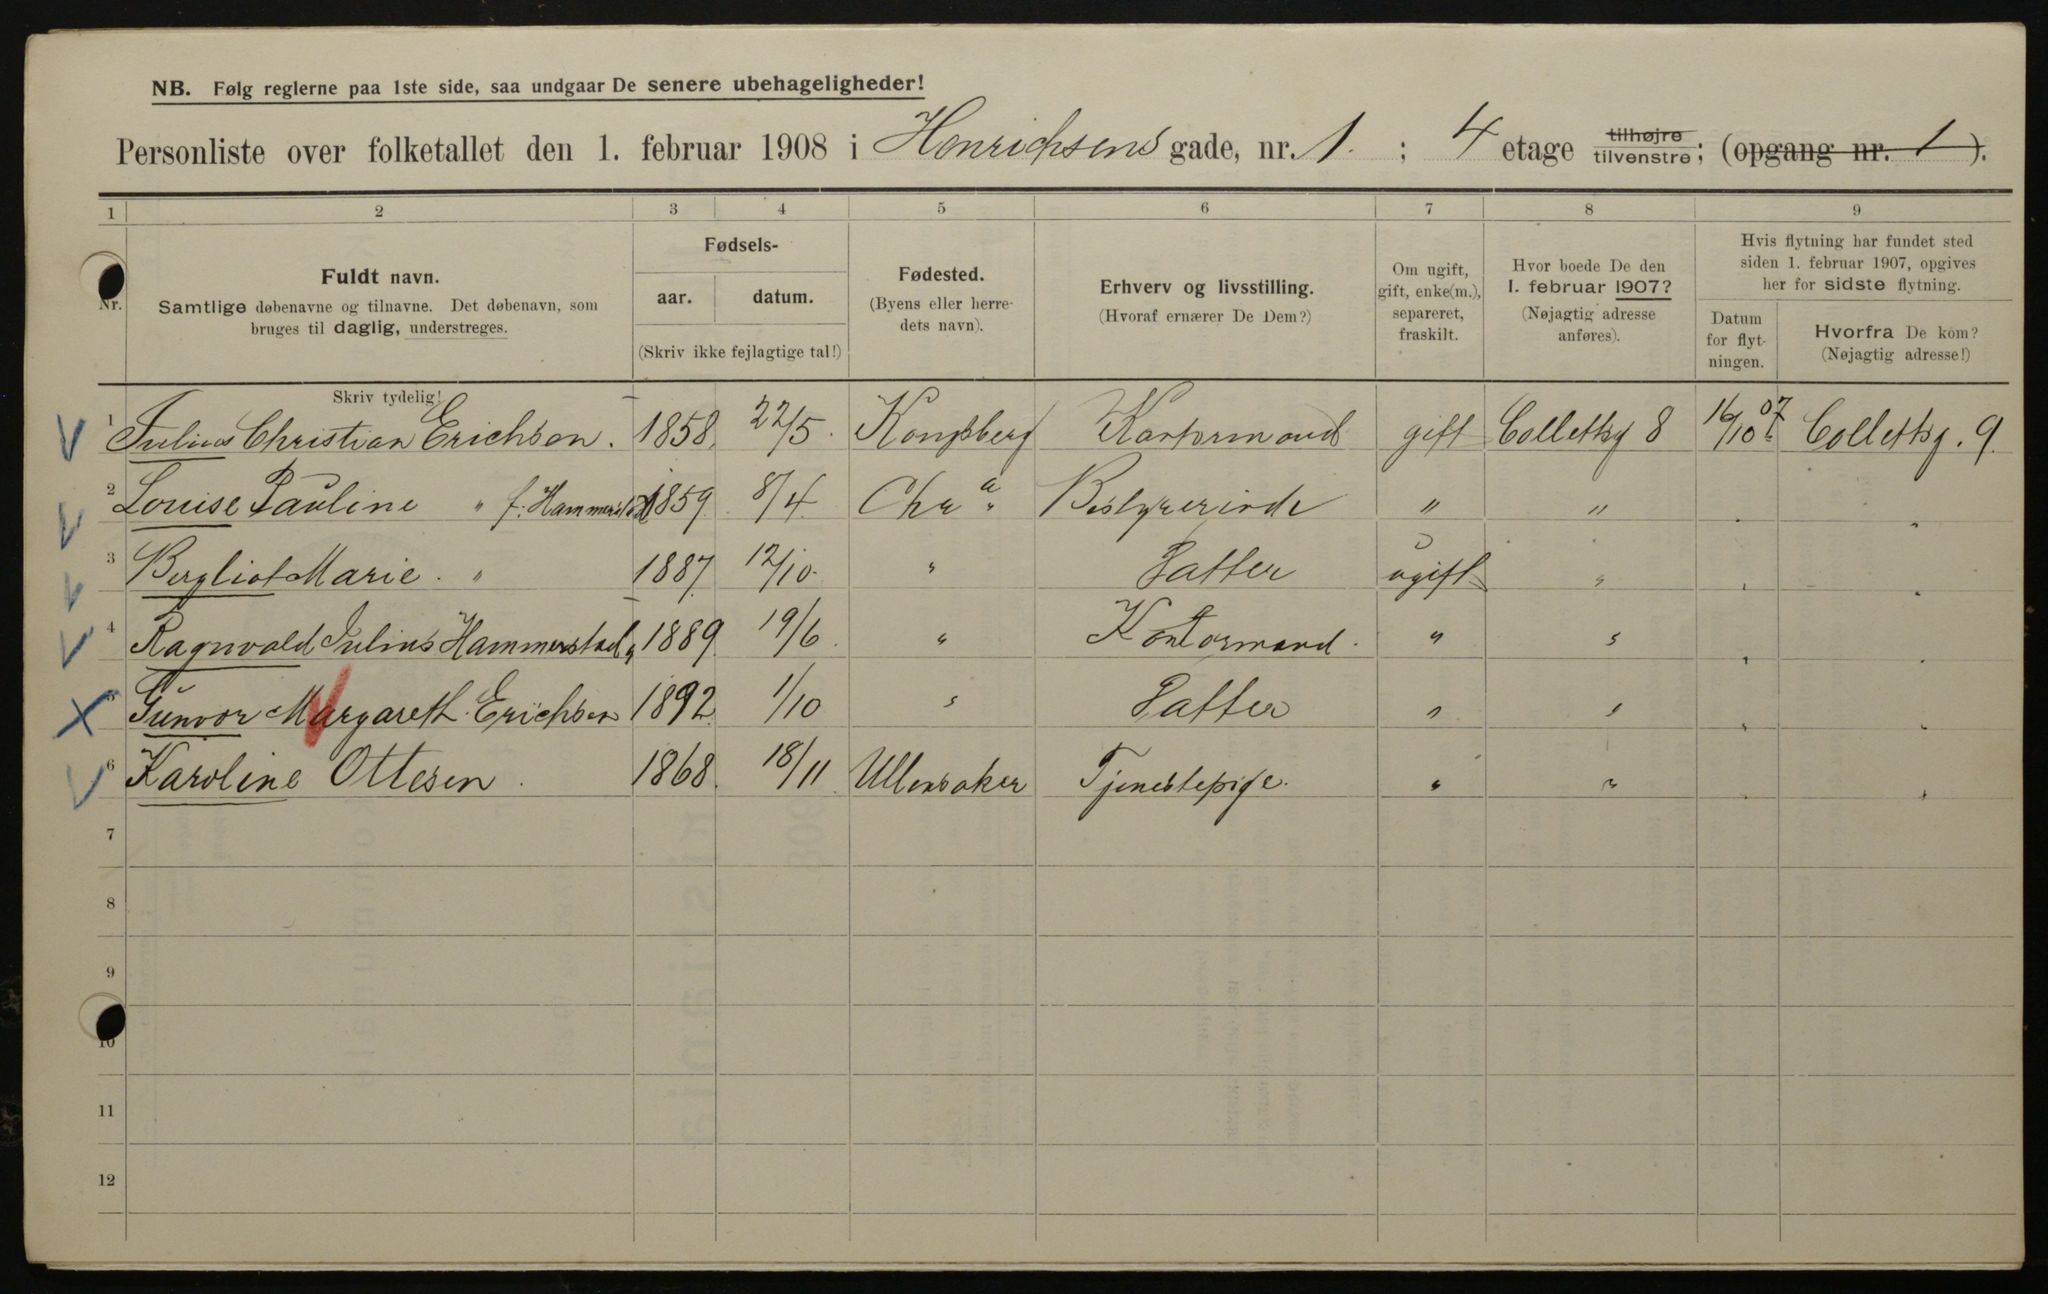 NB. Følg reglerne paa 1ste side, saa undgaar De senere ubehageligheder!
Personliste over folketallet den 1. februar 1908 i Henrichsens gade, nr. 1. ; 4 etage tilhøjre tilvenstre; (opgang nr. 1).
1 2 3 4 5 6 7 8 9
Nr.
Fuldt navn.
Samtlige døbenavne og tilnavne. Det døbenavn, som
bruges til daglig, understreges.
Skriv tydelig!
Fødsels-
aar. datum.
(Skriv ikke fejlagtige tal!)
Fødested.
(Byens eller herre-
dets navn).
Erhverv og livsstilling.
(Hvoraf ernærer De Dem?)
Om ugift,
gift, enke(m.),
separeret,
fraskilt.
Hvor boede De den
1. februar 1907?
(Nøjagtig adresse
anføres).
Hvis flytning har fundet sted
siden 1. februar 1907, opgives
her for sidste flytning.
Datum
for flyt-
ningen.
Hvorfra De kom?
(Nøjagtig adresse!)
1 Julius Christian Erichsen. 1858 22/5 Kongsberg Kontormand gift Colletsg 8 16/10 07 Colletsg. 9.
2 Louise Pauline " f. Hammerstad 1859 8/4 Chr.a Bestyrerinde " "
3 Bergliot Marie. " 1887 12/10 " Datter ugift "
4 Ragnvald Julius Hammerstad " 1889 19/6 " Kontormand. " "
5 Gunvor Margareth Erichsen 1892 1/10 " Datter " "
6 Karoline Ottesen. 1868 18/11 Ullensaker Tjenestepige. " "
7
8
9
10
11
12